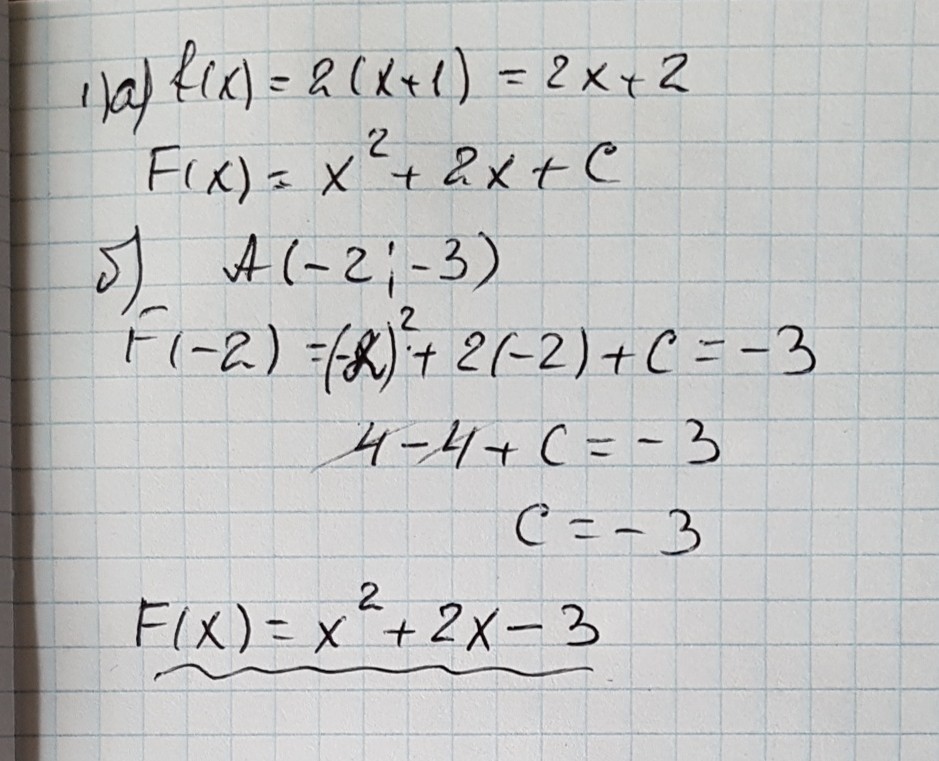 1) а) f(x) = 2(x+1) = 2x+2
F(x) = x² + 2x + C
б) A(-2; -3)
F(-2) = (-2)² + 2(-2) + C = -3
4 - 4 + C = -3
C = -3
F(x) = x² + 2x - 3